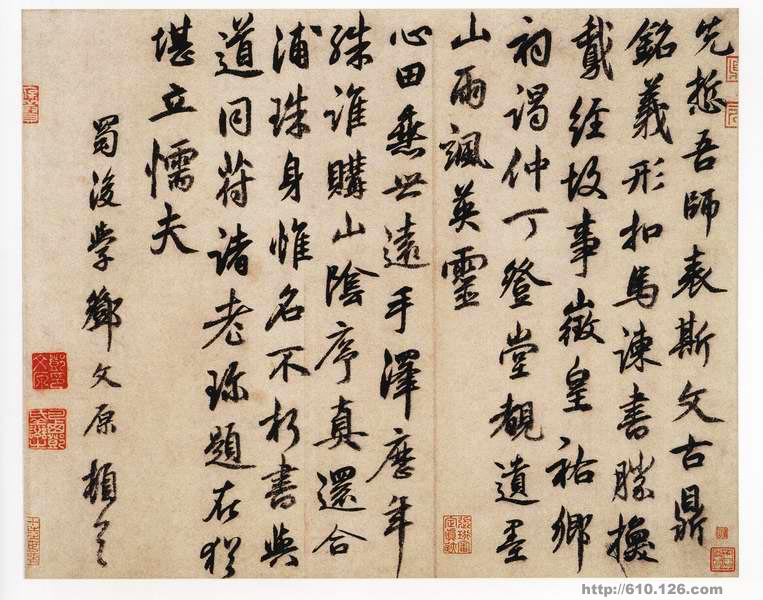 先悊吾師表斯文古鼎
銘義形扣馬諫書勝換
鵞經故事徵皇祐鄉
祠謁仲丁登堂覩遺墨
山雨颯英靈
心田垂世遠手澤歷年
殊誰購山陰序真還合
浦珠身惟名不朽書與
道同符諸老珎題在猶
堪立懦夫
蜀後學鄧文原頓首
http://610.126.com